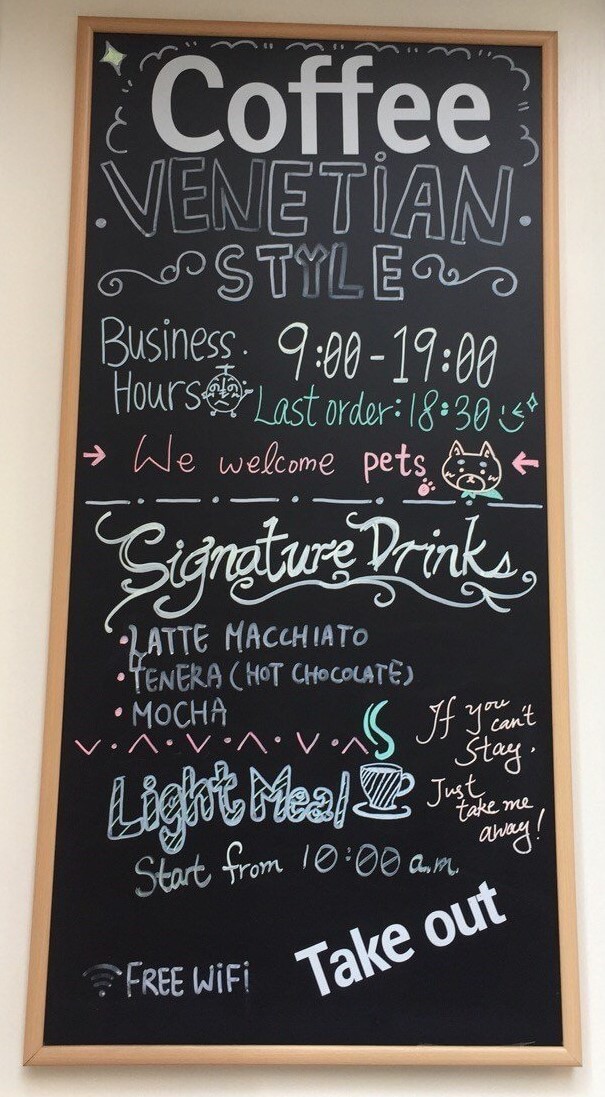 Coffee
VENETIAN
STYLE
Business
Hours
9:00-19:00
Last order:18:30
We welcome pets
Signature Drinks
LATTE MACCHIATO
TENERA (HOT CHOCOLATE)
MOCHA
If you
can't
stay.
Just
take me
away!
Light Meal
Start from 10:00 a.m.
Take out
FREE WiFi